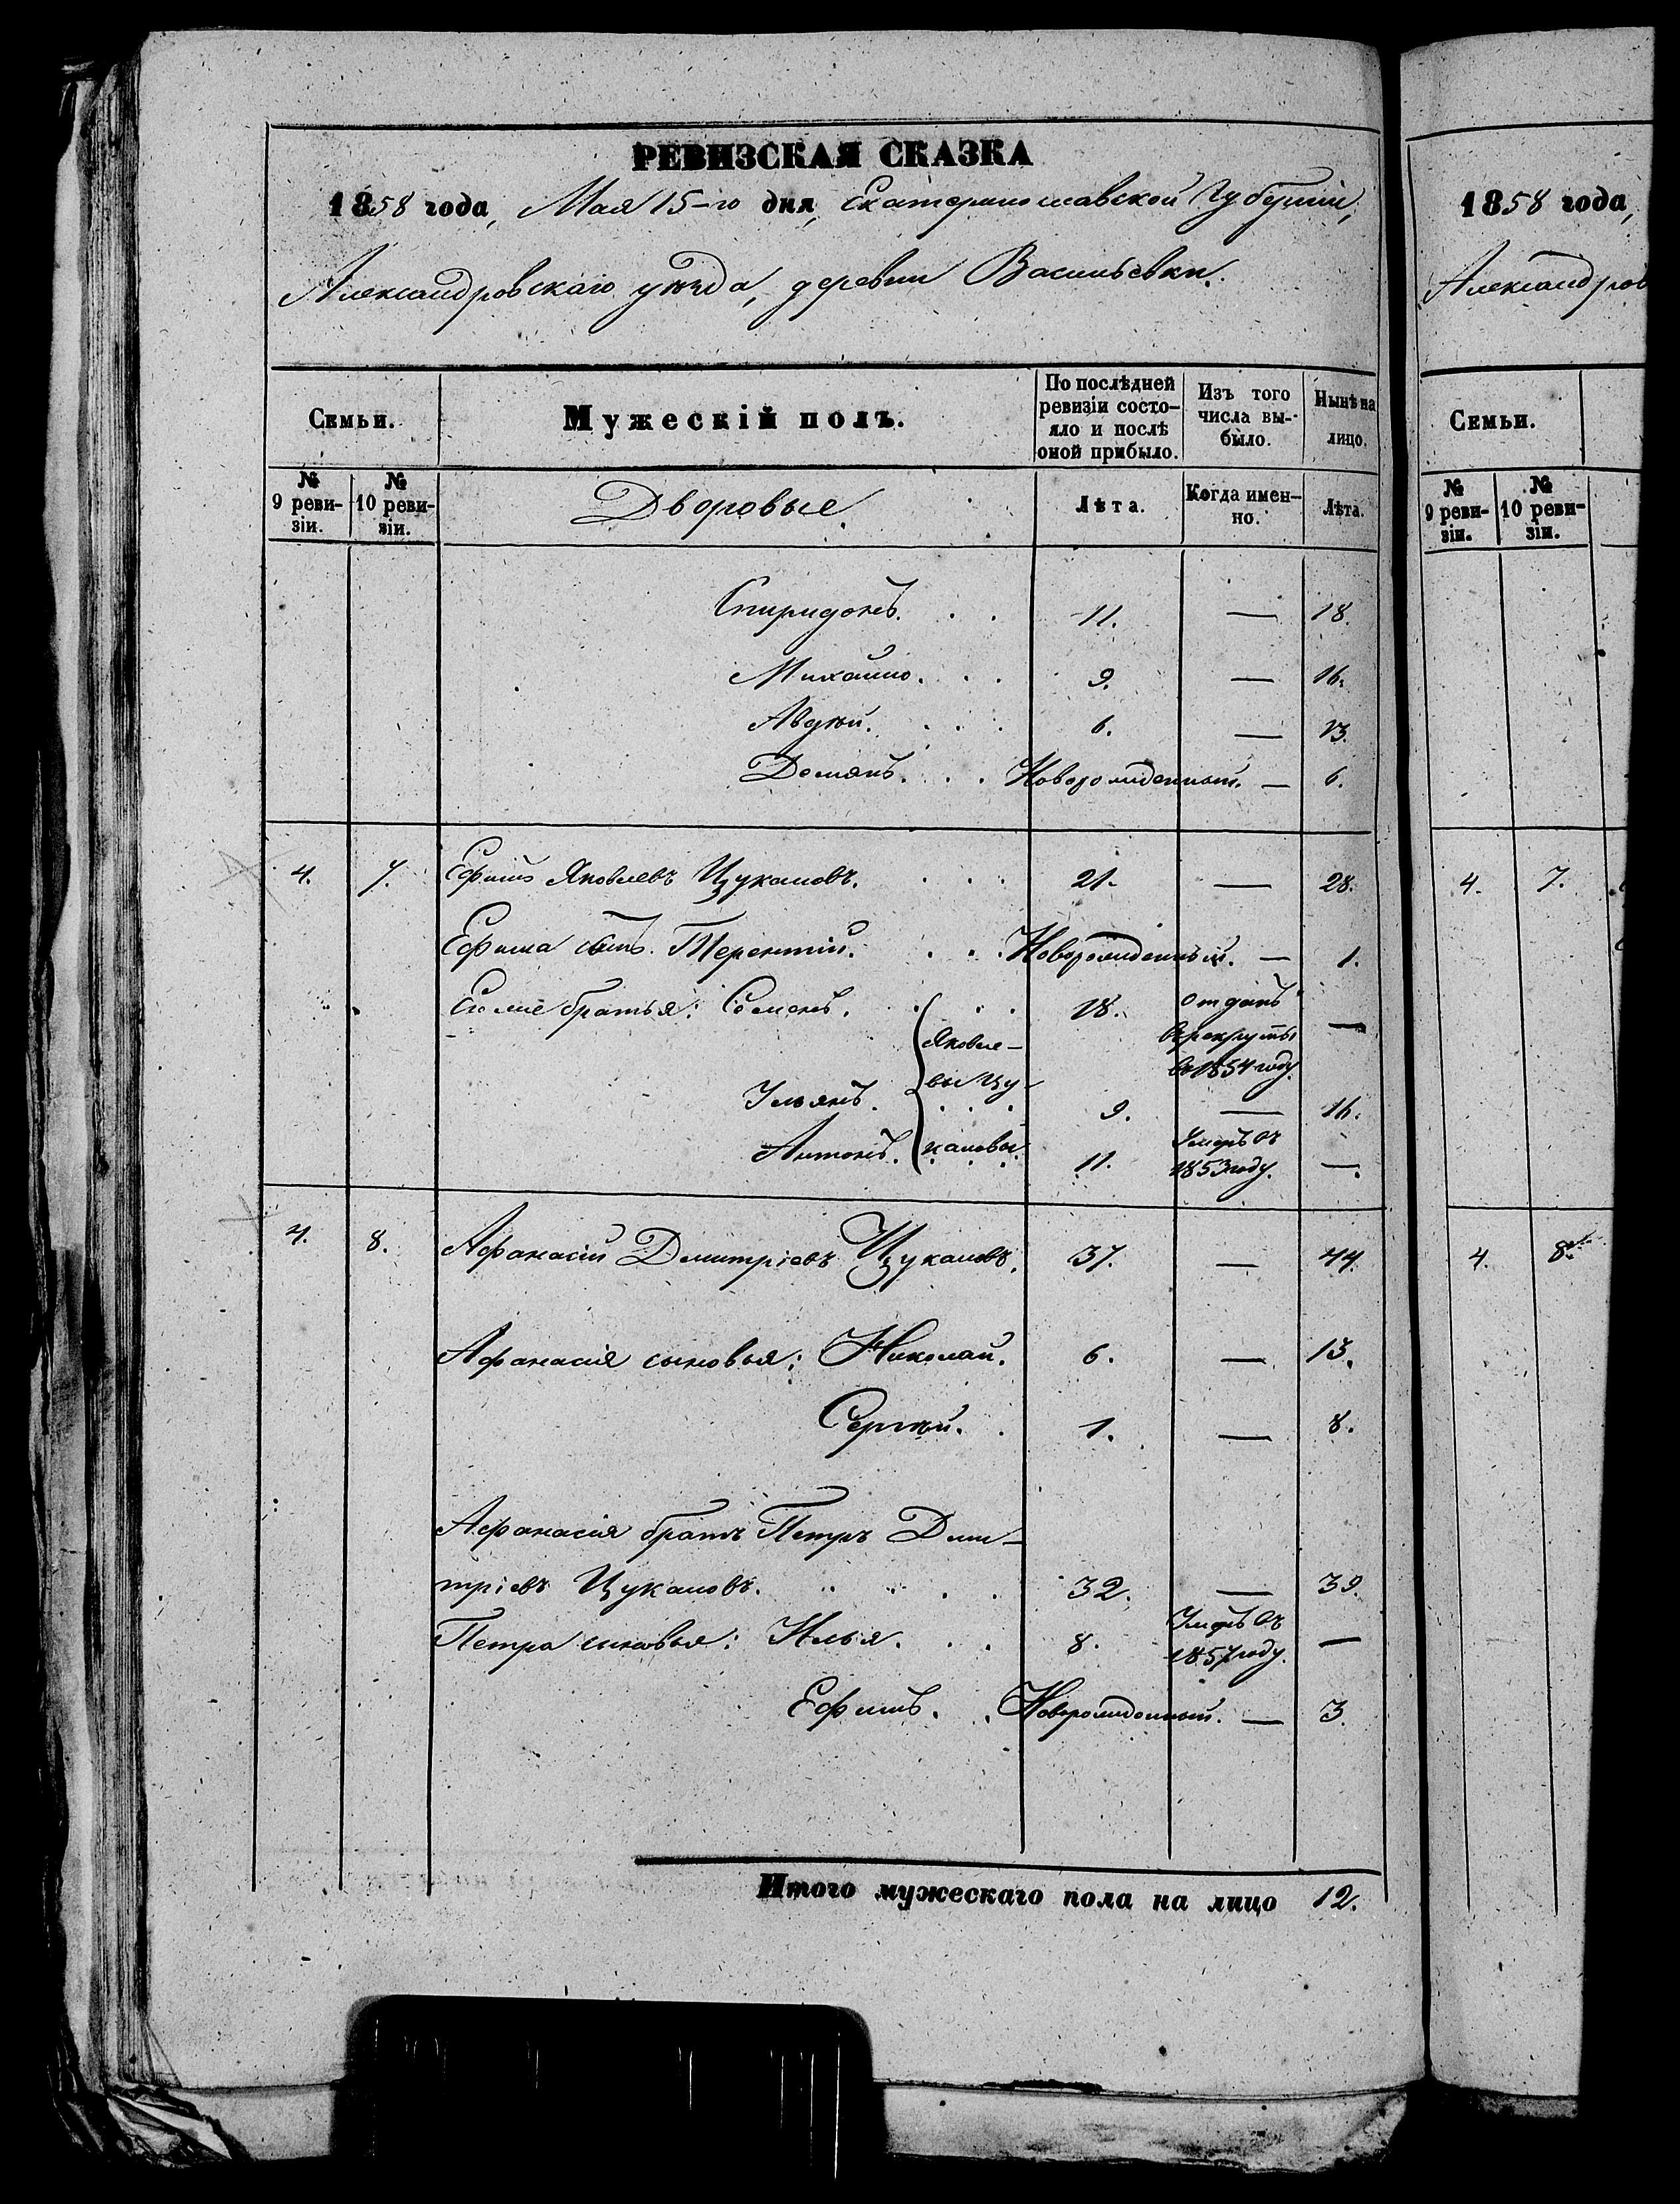 РЕВИЗСКАЯ СКАЗКА
1858 года, Мая 15-го дня, Екатеринославской Губерніи,
Александровскаго уѣзда, деревни Васильевки.
Семьи.
Мужескій полъ.
По послѣдней ревизіи состо-
яло и послѣ
оной прибыло.
Изъ того
числа вы-
было.
Нынѣ на
лицо.
№
9 реви-
зіи.
№
10 реви-
зіи.
Дворовые
Лѣта.
Когда имен-
но.
Лѣта.
Спиридонъ. 11. — 18.
Михайло. 9. — 16.
Авдѣй. 6. — 13.
Демянъ. Новорожденный. — 6.
4. 7. Ефимъ Яковлевъ Цукановъ. 21. — 28.
Ефима сынъ. Терентій. Новорожденный. — 1.
Его же братья: Семенъ. 18. отданъ
Яковле- в рекруты —
вы Цу- в 1854 году.
Ульянъ. 9. — 16.
Антонъ. кановы 11. Умеръ въ
1853 году. —.
4. 8. Афанасій Дмитріевъ Цукановъ. 37. — 44.
Афанасія сыновья: Николай. 6. — 13.
Сергѣй. 1. — 8.
Афанасія братъ Петръ Дми-
тріевъ Цукановъ. 32. — 39.
Петра сыновья: Илья. 8. Умеръ въ
1857 году. —
Ефимъ. Новорожденный. — 3.
Итого мужескаго пола на лицо 12.
1858 года,
Александров
Семьи.
№
9 реви-
зіи.
№
10 реви-
зіи.
4. 7.
4. 8.